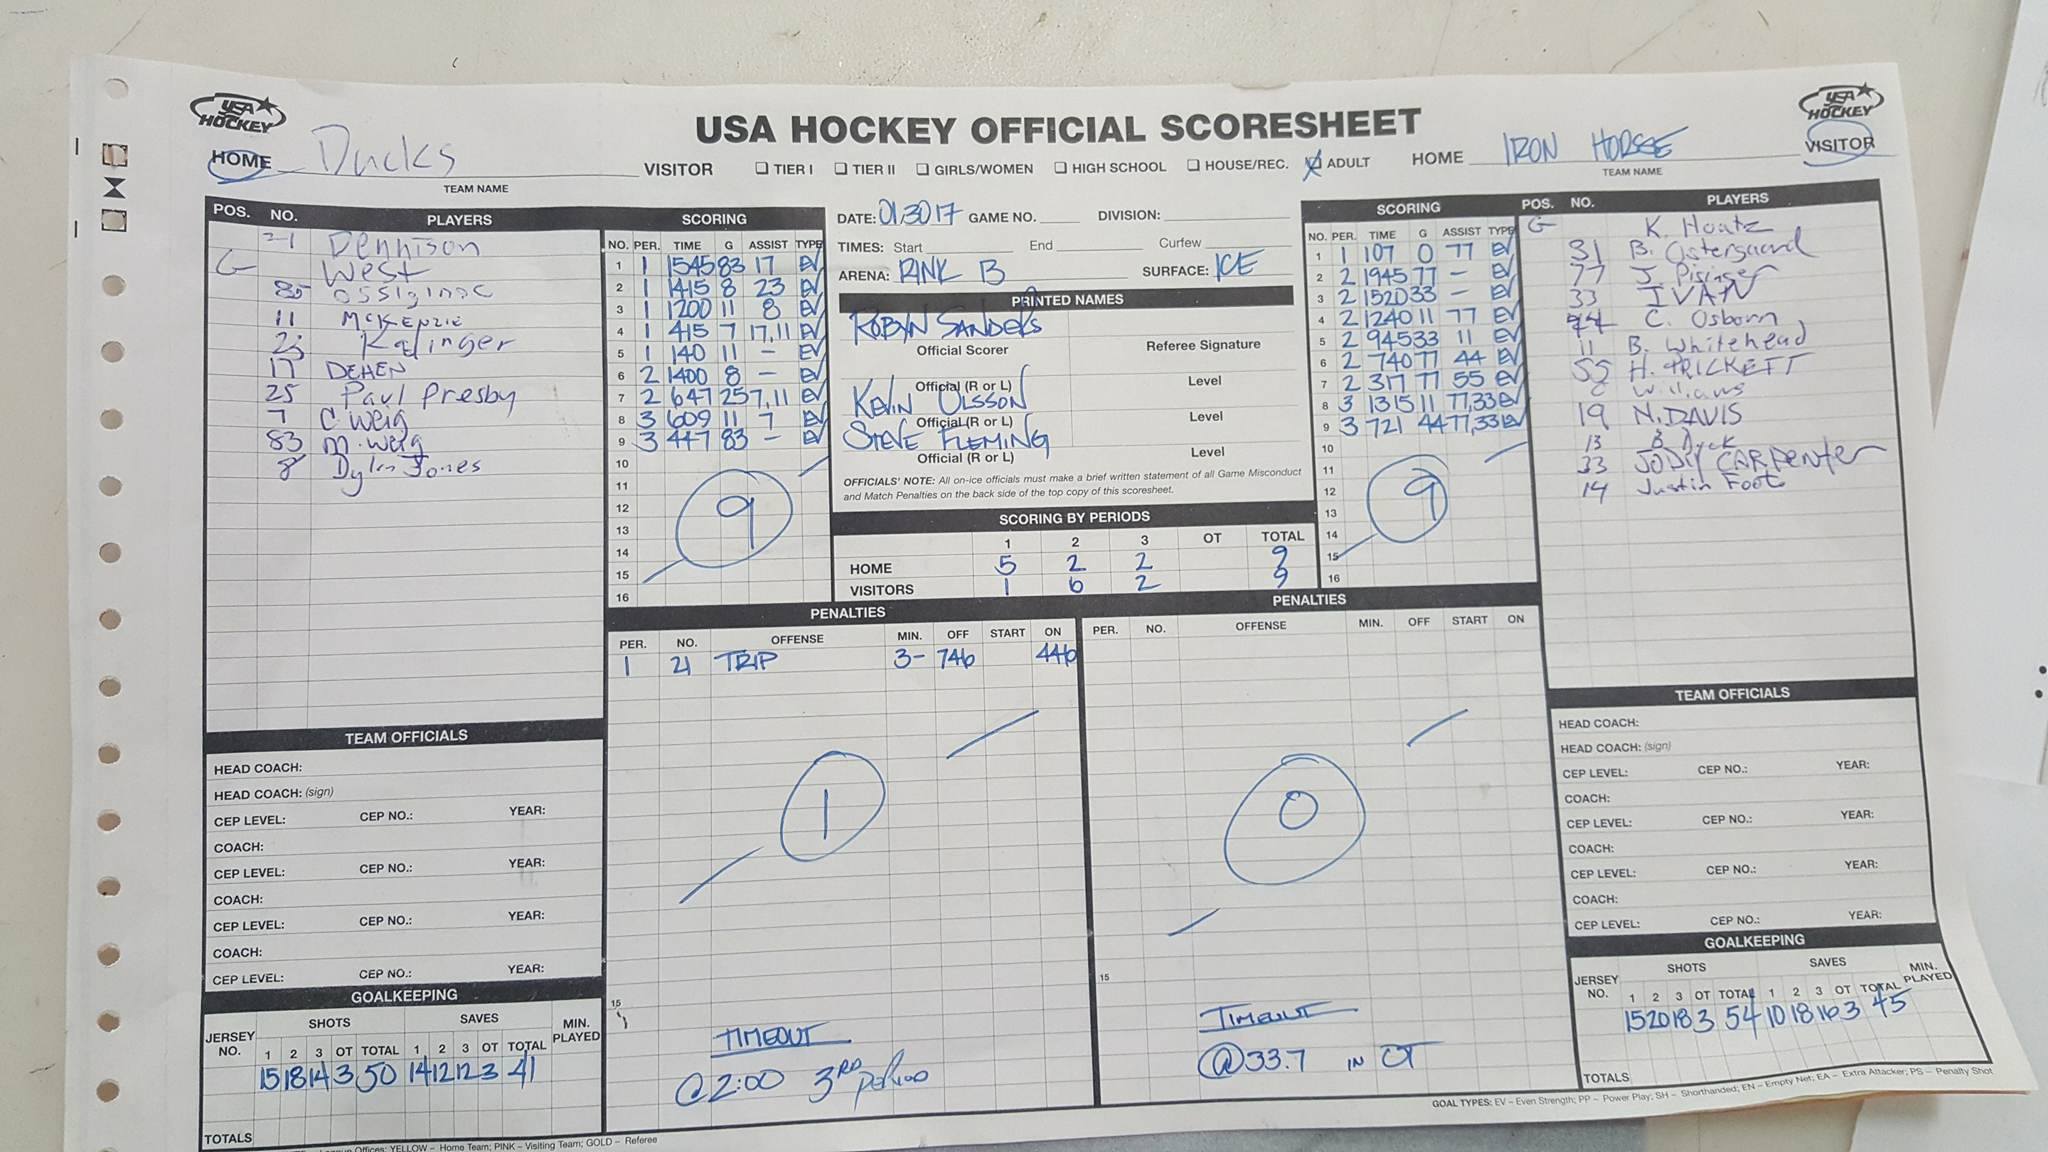 USA HOCKEY
USA HOCKEY
USA HOCKEY OFFICIAL SCORESHEET
HOME Ducks VISITOR
TEAM NAME
☐ TIER I ☐ TIER II ☐ GIRLS/WOMEN ☐ HIGH SCHOOL ☐ HOUSE/REC. ☒ ADULT
HOME IRON HORSE VISITOR
TEAM NAME
POS. NO. PLAYERS
Dennison
G West
85
11 McKENZIE
Kalinger
17 DEHEN
25 Paul Presby
7 C Weig
83 M. Weig
8 Dylan Jones
SCORING
NO. PER. TIME G ASSIST TYPE
1 1 1545 83 17 EV
2 1 1415 8 23 EV
3 1 1200 11 8 EV
4 1 415 7 17,11 EV
5 1 140 11 - EV
6 2 1400 8 - EV
7 2 647 25 7,11 EV
8 3 609 11 7 EV
9 3 447 83 - EV
10
11
12
13
14
15
16
9
DATE: 013017 GAME NO. DIVISION:
TIMES: Start End Curfew
ARENA: RINK B SURFACE: ICE
PRINTED NAMES
ROBYN SANDERS
Official Scorer Referee Signature
Official (R or L) Level
KEVIN OLSSON
Official (R or L) Level
STEVE FLEMING
Official (R or L) Level
OFFICIALS' NOTE: All on-ice officials must make a brief written statement of all Game Misconduct
and Match Penalties on the back side of the top copy of this scoresheet.
SCORING BY PERIODS
1 2 3 OT TOTAL
HOME 5 2 2 9
VISITORS 1 6 2 9
SCORING
NO. PER. TIME G ASSIST TYPE
1 1 107 0 77 EV
2 2 1945 77 - EV
3 2 1520 33 - EV
4 2 1240 11 77 EV
5 2 945 33 11 EV
6 2 740 77 44 EV
7 2 317 77 55 EV
8 3 1315 11 77,33 EV
9 3 721 44 77,33 EV
10
11
12
13
14
15
16
9
POS. NO. PLAYERS
G K. Hontz
31 B. Ostergaard
77 J. Pisinger
33 IVAN
44 C. Osborn
11 B. Whitehead
55 H. TRICKETT
Williams
19 N. DAVIS
13 B. Dyck
33 JODY CARPENTER
14 Justin Foot
PENALTIES
PER. NO. OFFENSE MIN. OFF START ON
1 21 TRIP 3- 746 446
1
15
TIMEOUT
@ 2:00 3RD period
PENALTIES
PER. NO. OFFENSE MIN. OFF START ON
0
15
TIMEOUT
@33.7 IN OT
TEAM OFFICIALS
HEAD COACH:
HEAD COACH: (sign)
CEP LEVEL: CEP NO.: YEAR:
COACH:
CEP LEVEL: CEP NO.: YEAR:
COACH:
CEP LEVEL: CEP NO.: YEAR:
COACH:
CEP LEVEL: CEP NO.: YEAR:
GOALKEEPING
JERSEY NO. SHOTS SAVES MIN. PLAYED
1 2 3 OT TOTAL 1 2 3 OT TOTAL
15 18 14 3 50 14 12 12 3 41
TOTALS
TEAM OFFICIALS
HEAD COACH:
HEAD COACH: (sign)
CEP LEVEL: CEP NO.: YEAR:
COACH:
CEP LEVEL: CEP NO.: YEAR:
COACH:
CEP LEVEL: CEP NO.: YEAR:
COACH:
CEP LEVEL: CEP NO.: YEAR:
GOALKEEPING
JERSEY NO. SHOTS SAVES MIN. PLAYED
1 2 3 OT TOTAL 1 2 3 OT TOTAL
15 20 18 3 54 10 18 16 3 45
TOTALS
GOAL TYPES: EV – Even Strength; PP – Power Play; SH – Shorthanded; EN – Empty Net; EA – Extra Attacker; PS – Penalty Shot
Offices; YELLOW – Home Team; PINK – Visiting Team; GOLD – Referee